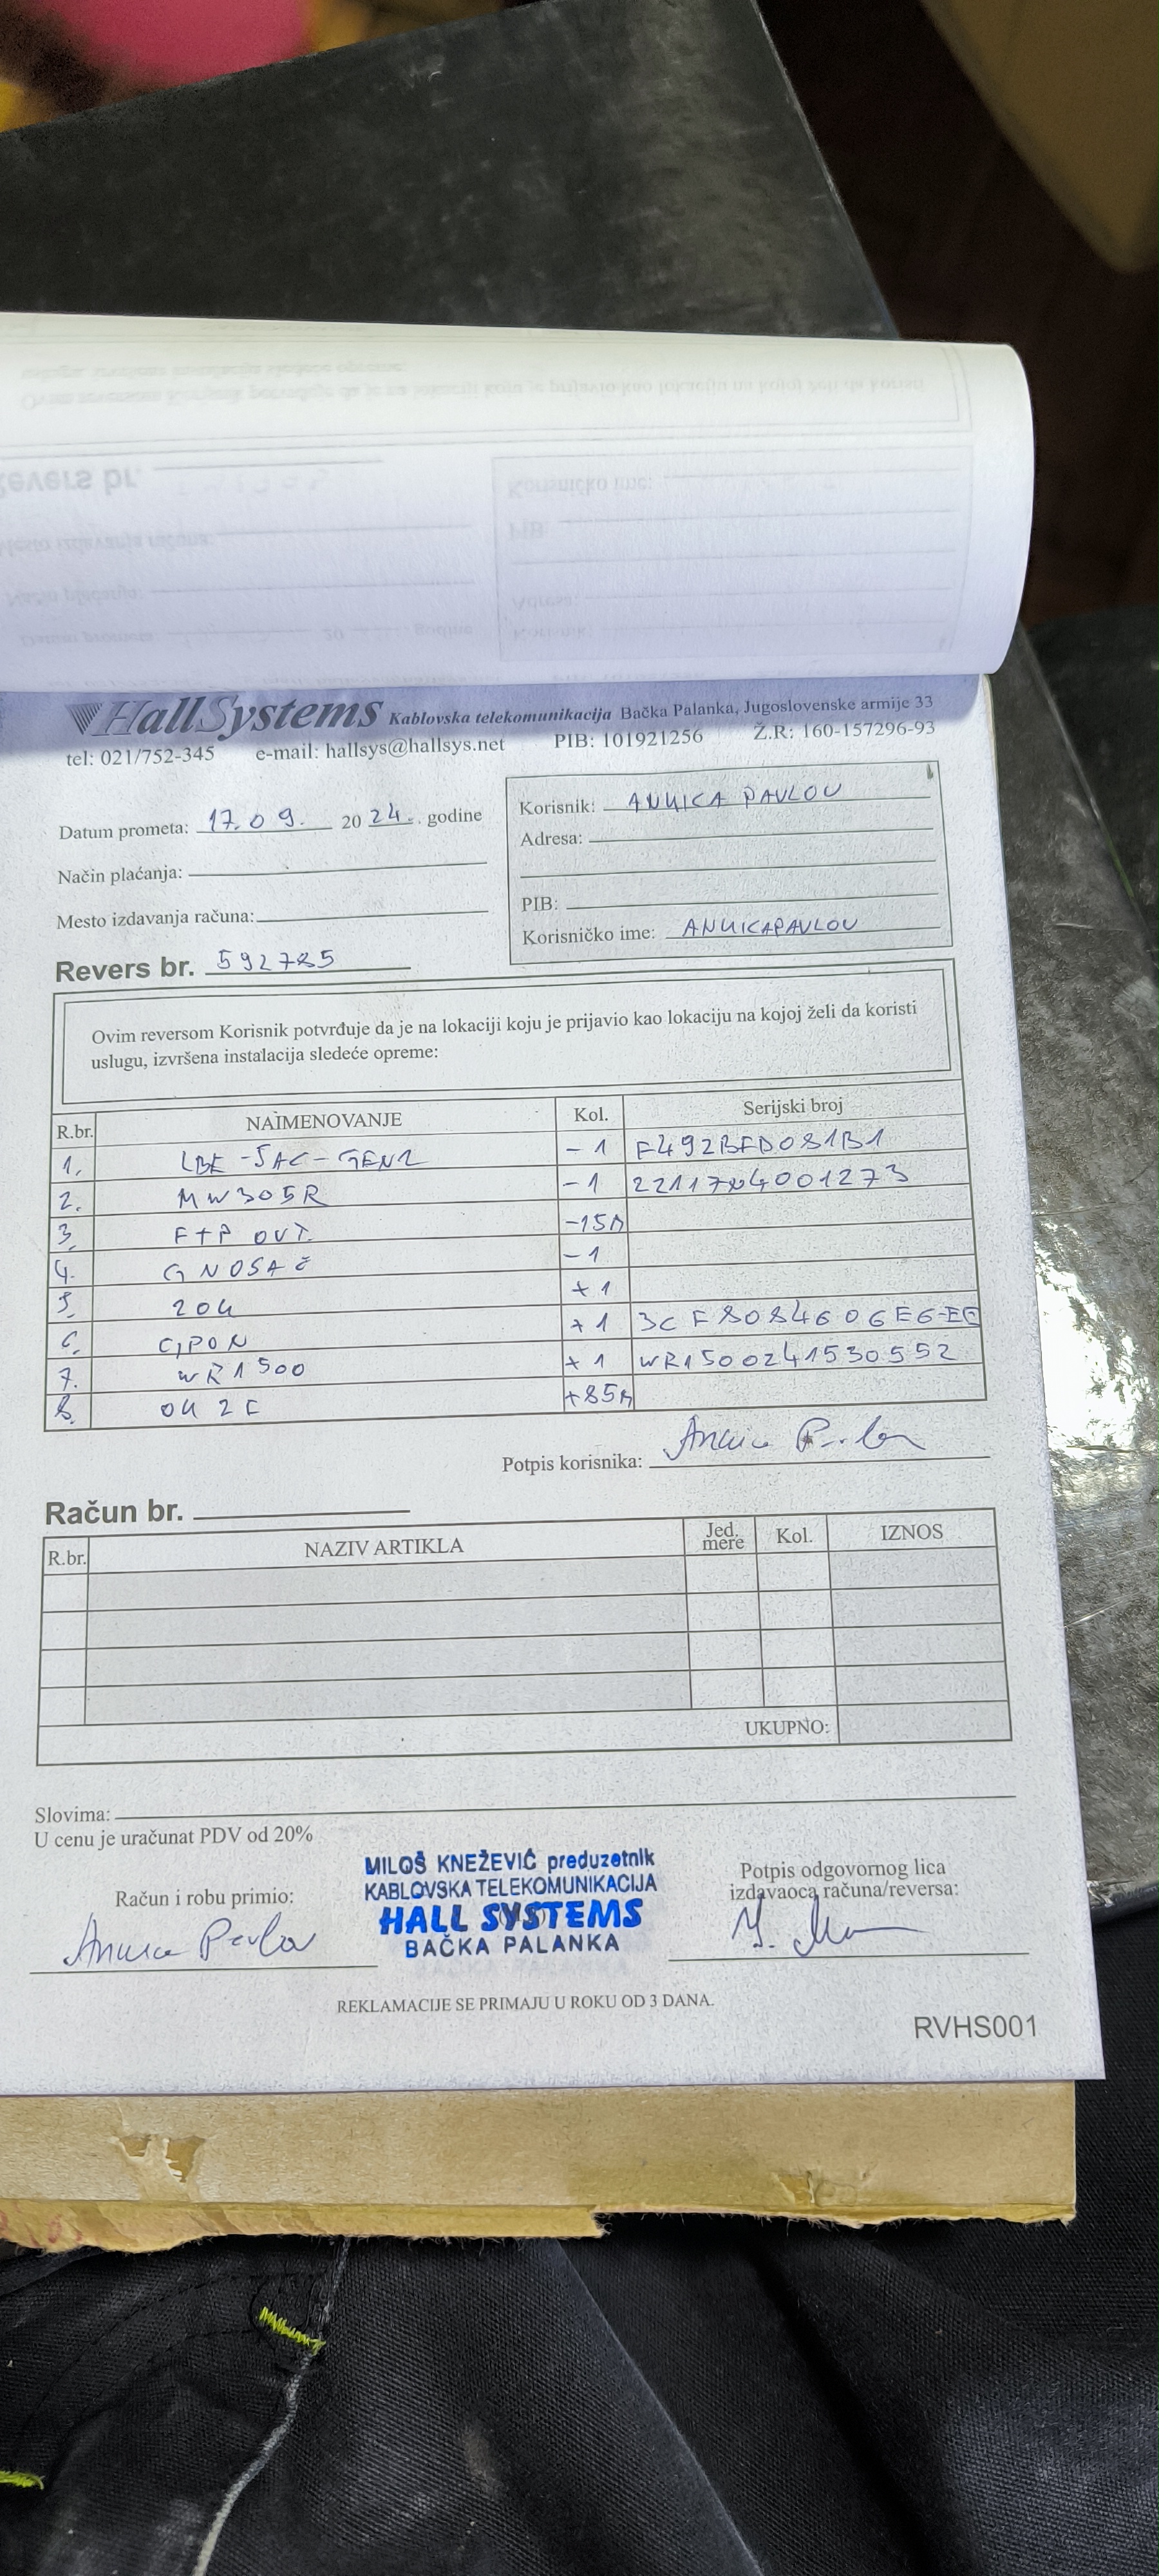 HallSystems Kablovska telekomunikacija Bačka Palanka, Jugoslovenske armije 33
tel: 021/752-345 e-mail: hallsys@hallsys.net PIB: 101921256 Ž.R: 160-157296-93
Datum prometa: 17.09. 2024. godine
Način plaćanja:
Mesto izdavanja računa:
Revers br. 592785
Korisnik: ANKICA PAVLOV
Adresa:
PIB:
Korisničko ime: ANKICAPAVLOV
Ovim reversom Korisnik potvrđuje da je na lokaciji koju je prijavio kao lokaciju na kojoj želi da koristi
uslugu, izvršena instalacija sledeće opreme:
R.br. NAIMENOVANJE Kol. Serijski broj
1. LBE-5AC-GEN2 -1 F492BFD081B1
2. MW305R -1 22117X4001273
3. FTP OUT. -15m
4. G NOSAČ -1
5. ZOK +1
6. GPON +1
7. WR1500 +1 WR1500241530552
8. OK 2F +85m
Potpis korisnika:
Račun br.
R.br. NAZIV ARTIKLA Jed. mere Kol. IZNOS
UKUPNO:
Slovima:
U cenu je uračunat PDV od 20%
Račun i robu primio:
MILOŠ KNEŽEVIĆ preduzetnik
KABLOVSKA TELEKOMUNIKACIJA
HALL SYSTEMS
BAČKA PALANKA
Potpis odgovornog lica
izdavaoca računa/reversa:
REKLAMACIJE SE PRIMAJU U ROKU OD 3 DANA.
RVHS001